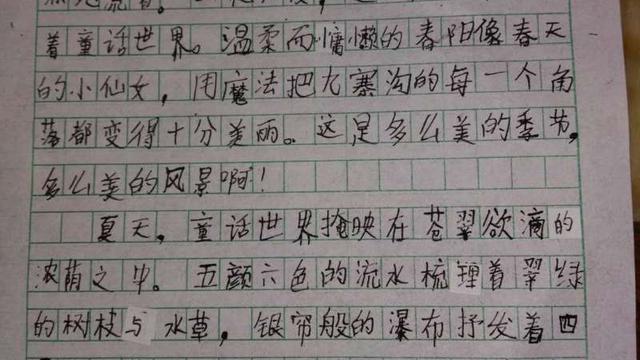 着童话世界。温柔而慵懒的春阳像春天
的小仙女，用魔法把九寨沟的每一个角
落都变得十分美丽。这是多么美的季节，
多么美的风景啊！
夏天，童话世界掩映在苍翠欲滴的
浓荫之中。五颜六色的流水梳理着翠绿
的树枝与水草，银帘般的瀑布抒发着四